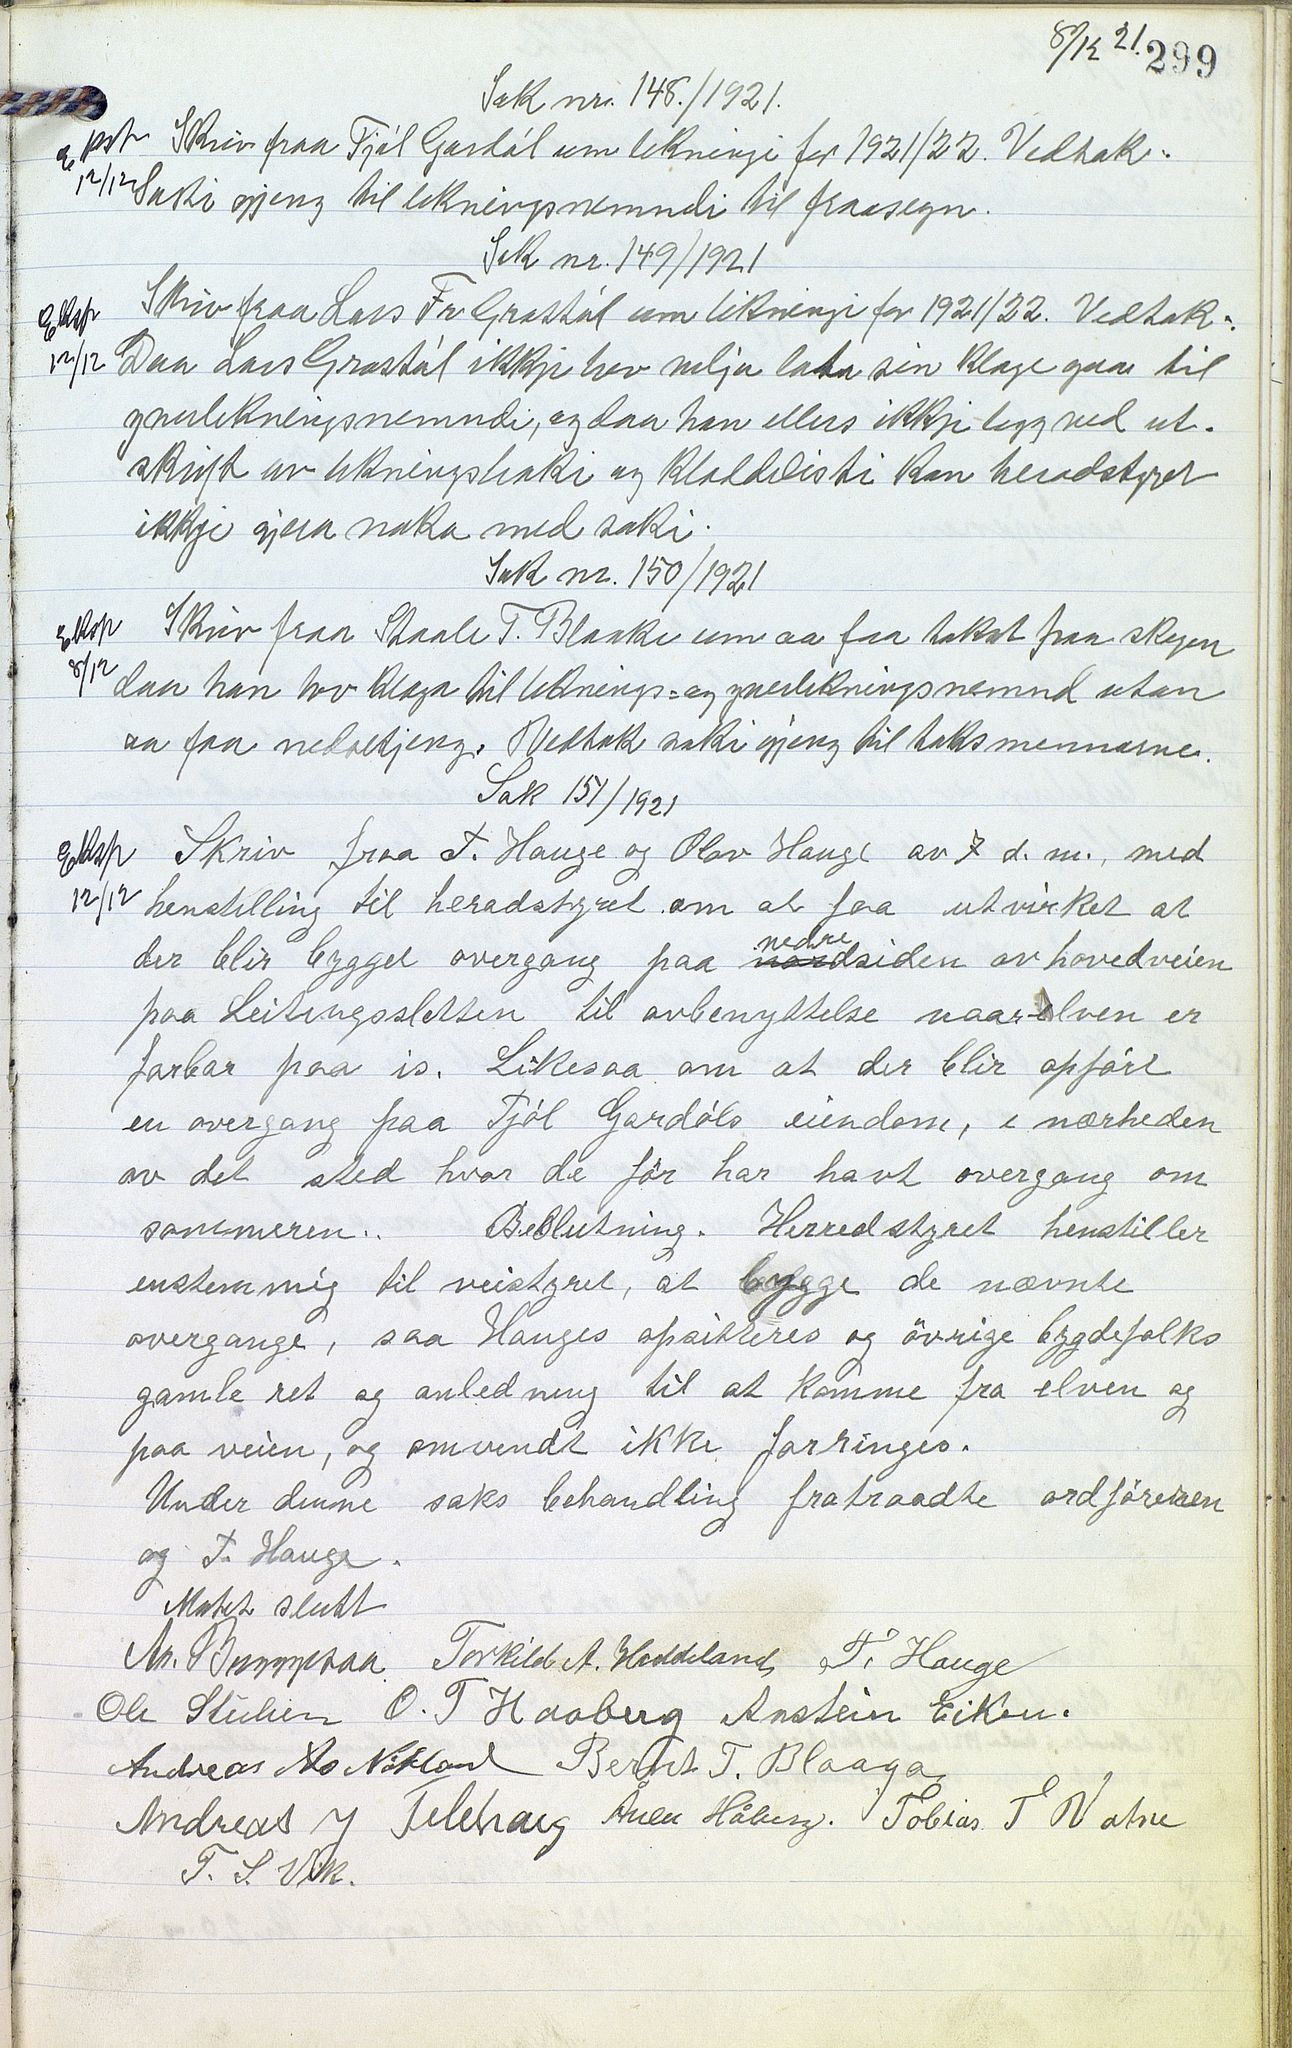 8/12 21. 299
Sak nr. 148./1921.
Eksp 12/12
Skriv fraa Tjøl Gardøl um likningi for 1921/22. Vedtak:
Saki gjeng til likningsnemndi til fraasegn.
Sak nr. 149/1921
Eksp 12/12
Skriv fraa Lars Fr Grostøl um likningi for 1921/22. Vedtak:
Daa Lars Grostøl ikkje hev vilja lata sin klage gaa til
yverlikningsnemndi, og daa han ellers ikkje legg ved ut-
skrift av likningsboki og kladdelisti kan heradstyret
ikkje gjera noko med saki.
Sak nr. 150/1921
Eksp 8/12
Skriv fraa Staale T. Blaake um aa faa takst paa skogen
daa han hev klaga til liknings- og yverlikningsnemnd utan
aa faa nedsetjeng. Vedtak saki gjeng til taksmennarne.
Sak 151/1921
Eksp 12/12
Skriv fraa T. Hauge og Olav Hauge av 7 d. m., med
henstilling til heradstyret om at faa utvirket at
der blir bygget overgang paa nedre nordsiden av hovedveien
paa Leitingssletten til avbenyttelse naar elven er
farbar paa is. Likesaa om at der blir opført
en overgang paa Tjøl Gardøls eiendom, i nærheden
av det sted hvor de før har havt overgang om
sommeren. Beslutning. Herredstyret henstiller
enstemmig til veistyret, at bygge de nævnte
overgange, saa Hauges opsitteres og övrige bygdefolks
gamle ret og anledning til at komme fra elven og
paa veien, og omvendt ikke forringes.
Under denne saks behandling fratraadte ordföreren
og T. Hauge.
Møtet slutt
Torkild A. Hoddeland T. Hauge
Ole Stulien O. T Haaberg Anstein Eiken.
Andreas Aas Nökland Bernt T. Blaaga
Andreas J Telehaug Ånen Håberg. Tobias T Vatne
T. S. Vik.